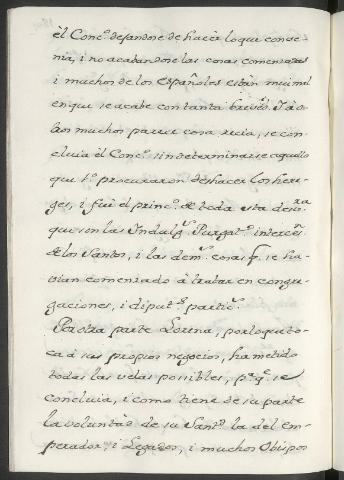 èl Conc.º dejandose de hacèr lo que conve-
nìa, i no acabandose las cosas comenzadas
i muchos de los Españoles estàn mui mal
en que se acabe con tanta breved.d I à o-
tros muchos parece cosa recia, se con-
cluia èl Conc.º sin determinarse aquello
que 1.º procuraron deshacer los here-
ges, i fuè el princ.º de toda esta desv.ra
que son las Indulg.s Purgat.º interces.n
de los Santos, i las dem.s cosas q. se ha-
vian comenzado à tratar en congre-
gaciones, i diput.s partic.s
Por otra parte Lorena, por lo que to-
ca à sus propios negocios, ha metido
todas las velas posibles, p.a q.e se
concluia, i como tiene de su parte
la voluntad de su Sant.d la del Em-
perador, i Legados, i muchos Obispos